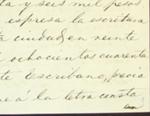 ta y seis mil pesos
espresa la escritura
ta ciudad, en veinte
ochocientos cuarenta
te Escribano,
á la letra consta